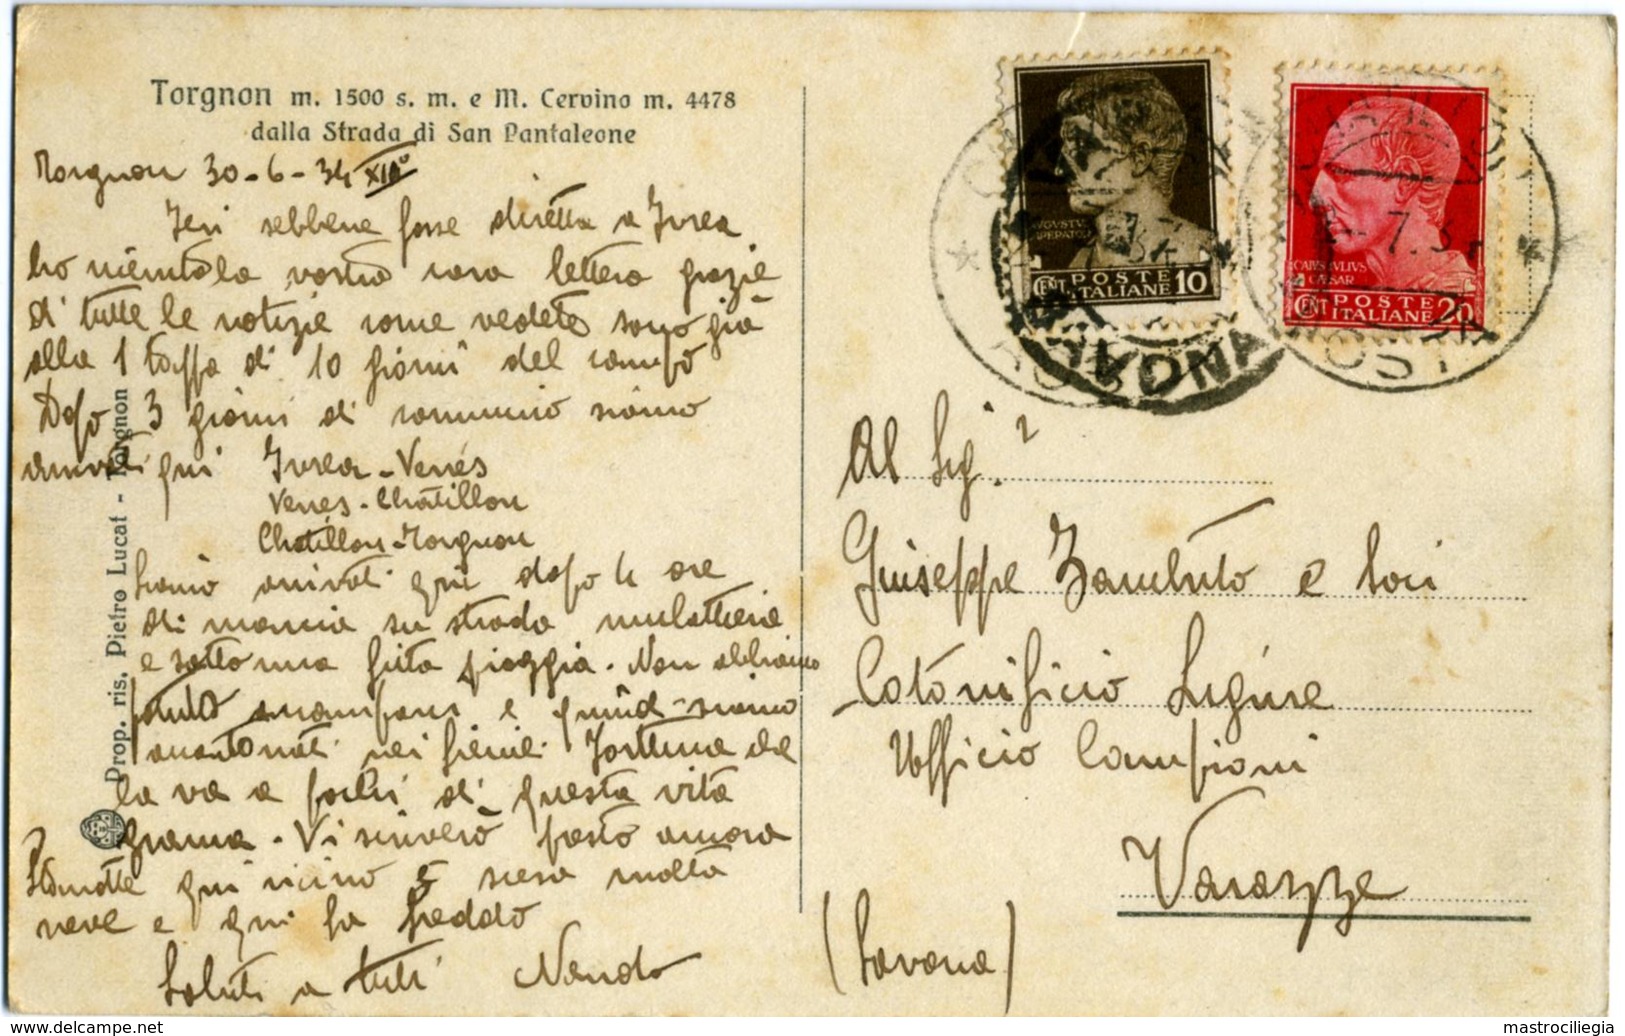 Torgnon m. 1500 s. m. e M. Cervino m. 4478
dalla Strada di San Pantaleone
Torgnon 30-6-34 XII°
Ieri sebbene fosse diretta a Ivrea
ho la vostra cara lettera grazie
di tutte le notizie come vedete sono già
alla 1 tappa di 10 giorni del campo
Dopo 3 giorni di cammino siamo
arrivati qui Ivrea - Verrés
Verres - Chatillon
Chatillon - Torgnon
Siamo arivati qui dopo 4 ore
di marcia su strada mulattiera
e sotto una fitta pioggia. Non abbiamo
e quindi siamo
nei fienili. Fortuna che
la va a pochi di questa vita
grama - Vi scriverò posto ancora
Stanotte qui vicino è scesa molta
neve e qui fa freddo
Saluti a tutti Nando
Prop. ris. Pietro Lucat - Torgnon
AVGVSTVS
IMPERATOR
CENT. POSTE ITALIANE 10
CAIVS IVLIVS
CAESAR
CENT POSTE ITALIANE 20
SAVONA
POSTA
7.34
Al Sig.r
Giuseppe Zambuto e Soci
Cotonificio Ligure
Ufficio Campioni
Varazze
(Savona)
www.delcampe.net
mastrociliegia